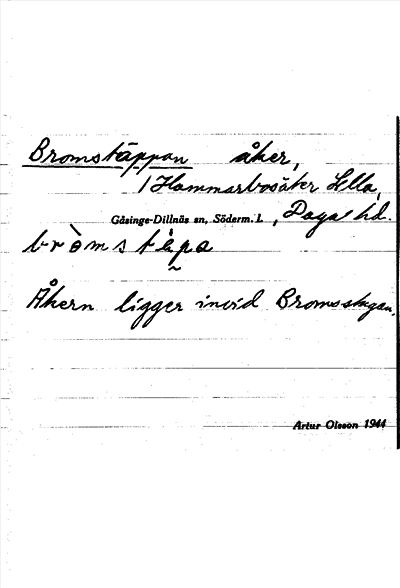 Bromstäppan åker,
1 Hammarbosäter Lilla,
Gåsinge-Dillnäs sn, Söderm. l., Daga hd.
bròmstèpa
Åkern ligger invid Bromsstugan.
Artur Olsson 1944